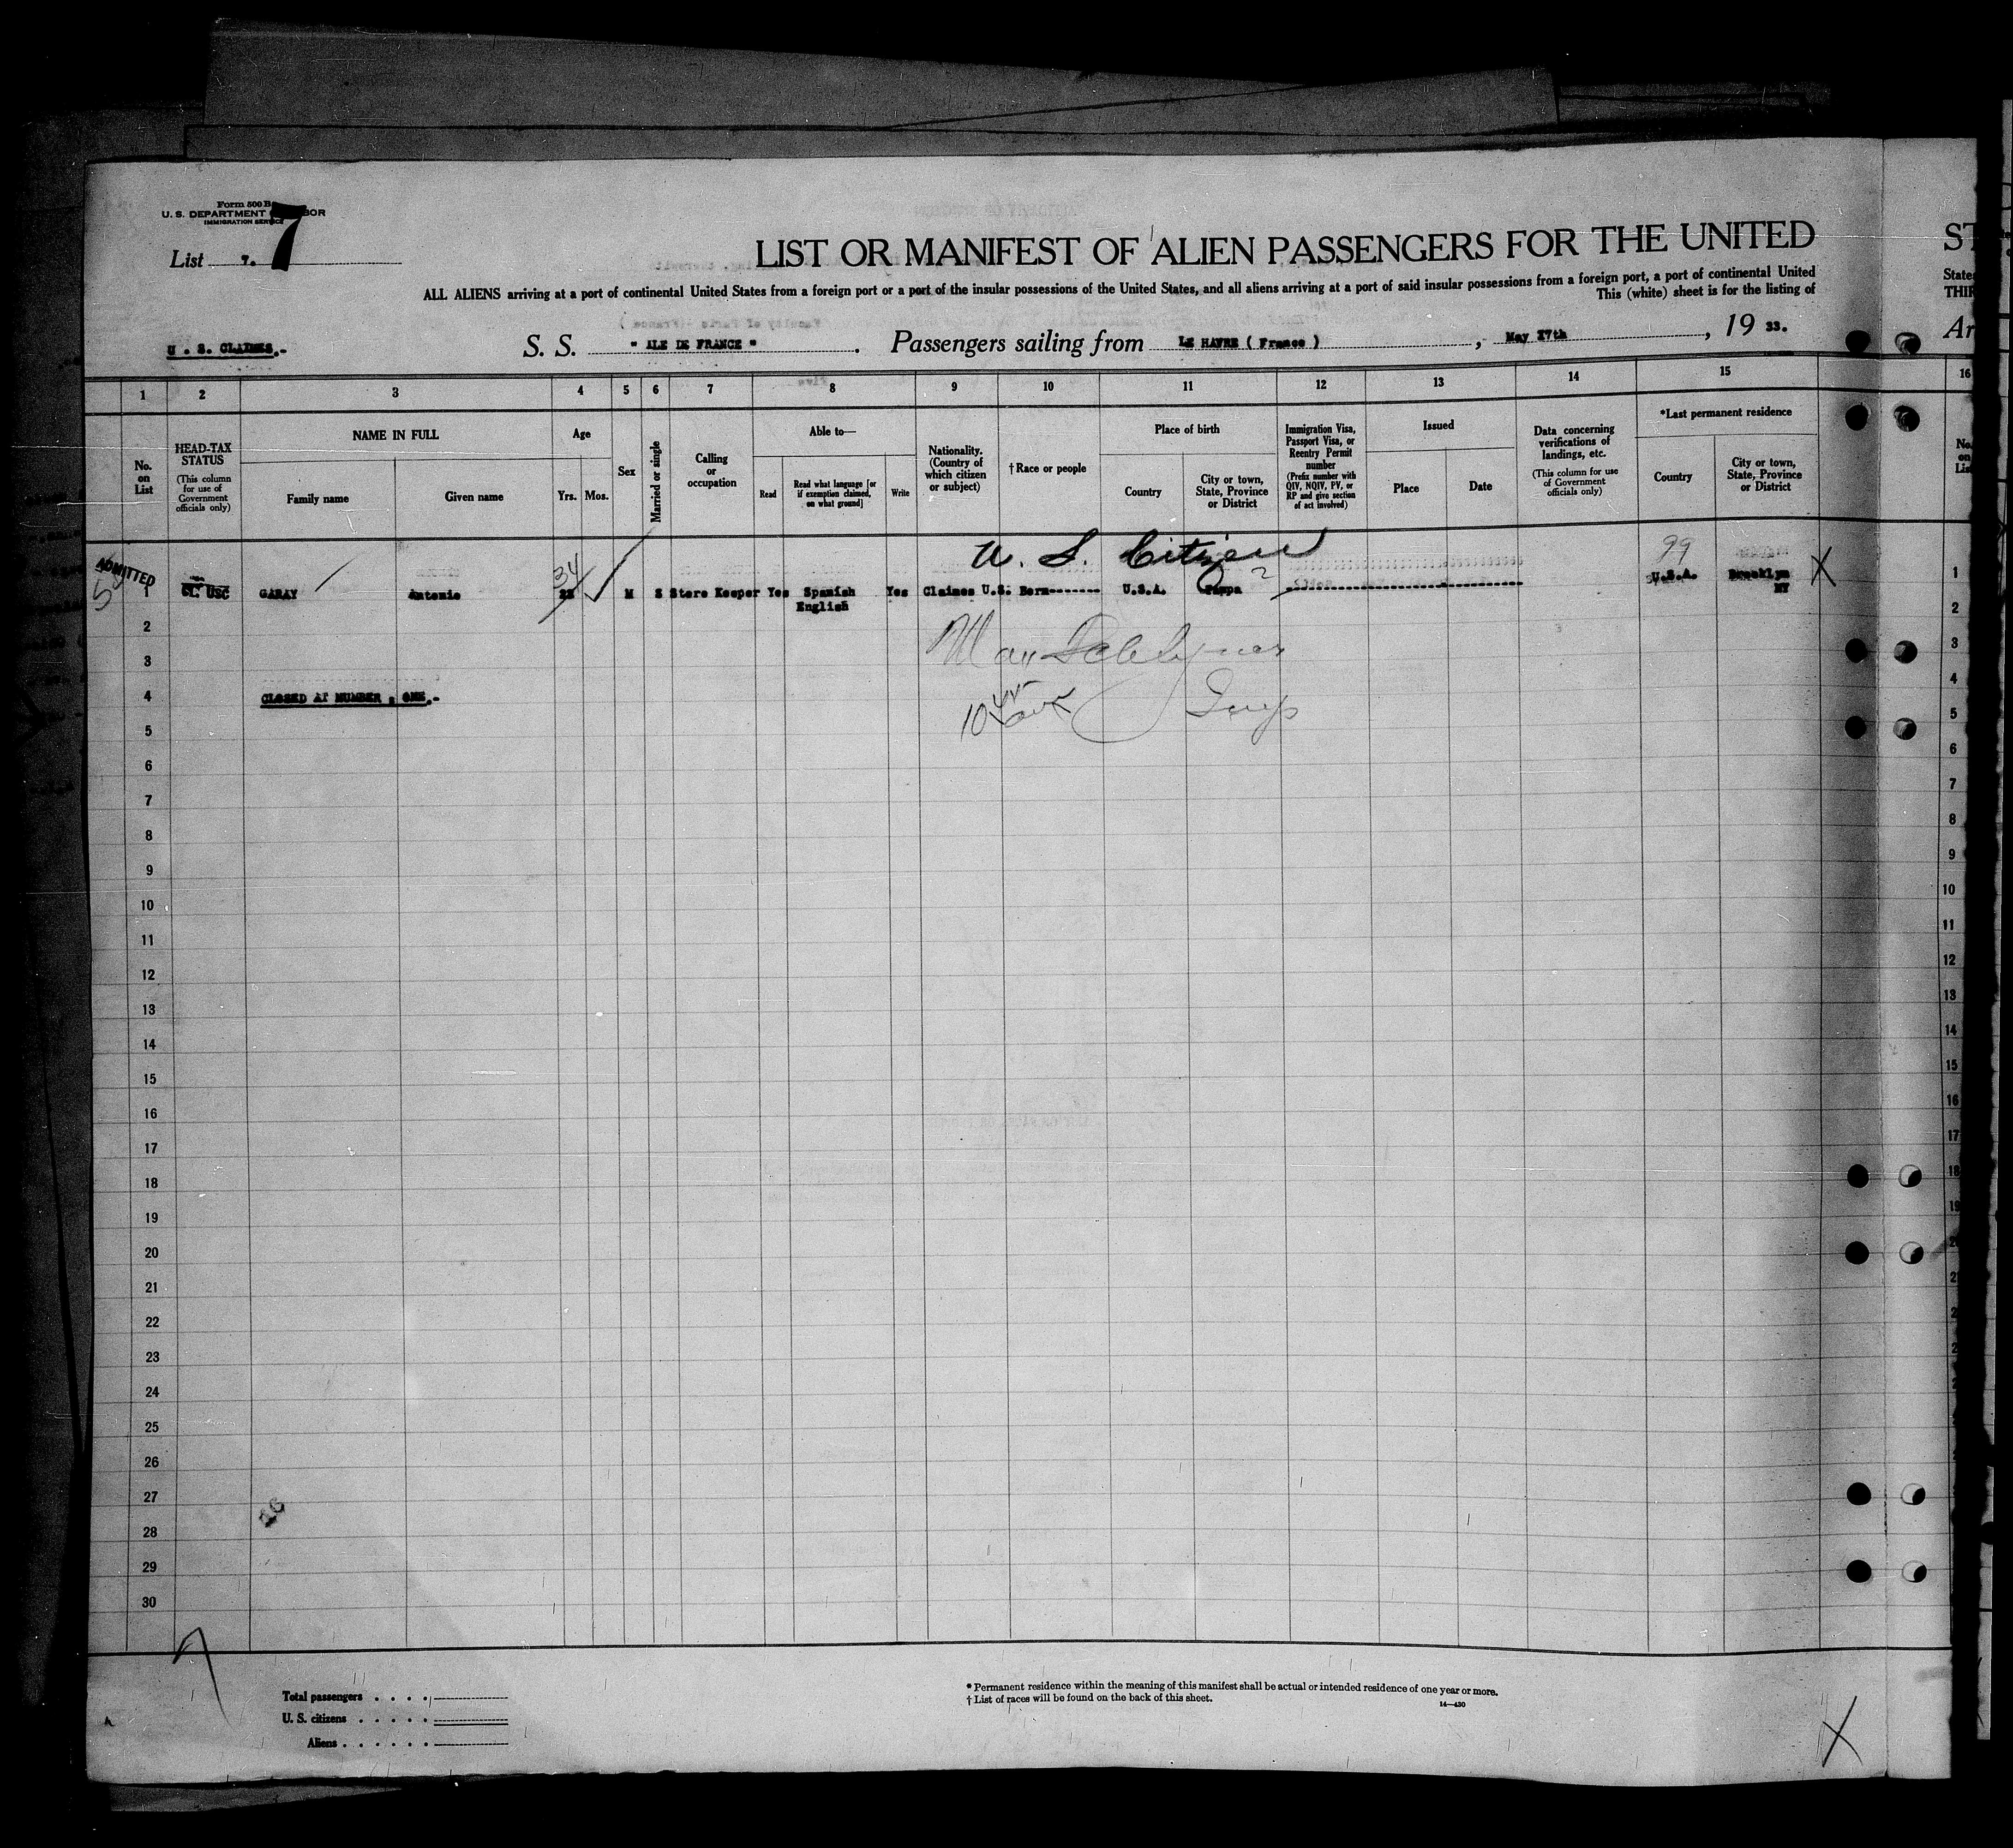 Form 500 B
U. S. DEPARTMENT
IMMIGRATION SERVICE
List 7. 7
LIST OR MANIFEST OF ALIEN PASSENGERS FOR THE UNITED
ALL ALIENS arriving at a port of continental United States from a foreign port or a port of the insular possessions of the United States, and all aliens arriving at a port of said insular possessions from a foreign port, a port of continental United
This (white) sheet is for the listing of
U . S. CLAIMES.-
S. S. " ILE DE FRANCE " . Passengers sailing from LE HAVRE ( France ) , May 17th , 19 33.
1 2 3 4 5 6 7 8 9 10 11 12 13 14 15 16
No. on List
HEAD-TAX STATUS (This column for use of Government officials only)
NAME IN FULL
Family name Given name
Age
Yrs. Mos.
Sex
Married or single
Calling or occupation
Able to—
Read Read what language [or if exemption claimed, on what ground] Write
Nationality. (Country of which citizen or subject)
†Race or people
Place of birth
Country City or town, State, Province or District
Immigration Visa, Passport Visa, or Reentry Permit number (Prefix number with QIV, NQIV, PV, or RP and give section of act involved)
Issued
Place Date
Data concerning verifications of landings, etc. (This column for use of Government officials only)
*Last permanent residence
Country City or town, State, Province or District
U. S. Citizen
ADMITTED
34 99
1 USC GARAY Antonio M S Store Keeper Yes Spanish Yes Claimes U.S. Born------- U.S.A. Tampa ? U.S.A. Brooklyn X 1
English NY
2 2
3 3
4 CLOSED AT NUMBER : ONE.- 4
5 5
6 6
7 7
8 8
9 9
10 10
11 11
12 12
13 13
14 14
15 15
16 16
17 17
18 18
19 19
20
21
22
23
24
25
26
27
28
29
30
Total passengers . . . .
U. S. citizens . . . . .
Aliens . . . . . .
* Permanent residence within the meaning of this manifest shall be actual or intended residence of one year or more.
† List of races will be found on the back of this sheet.
14—430
X